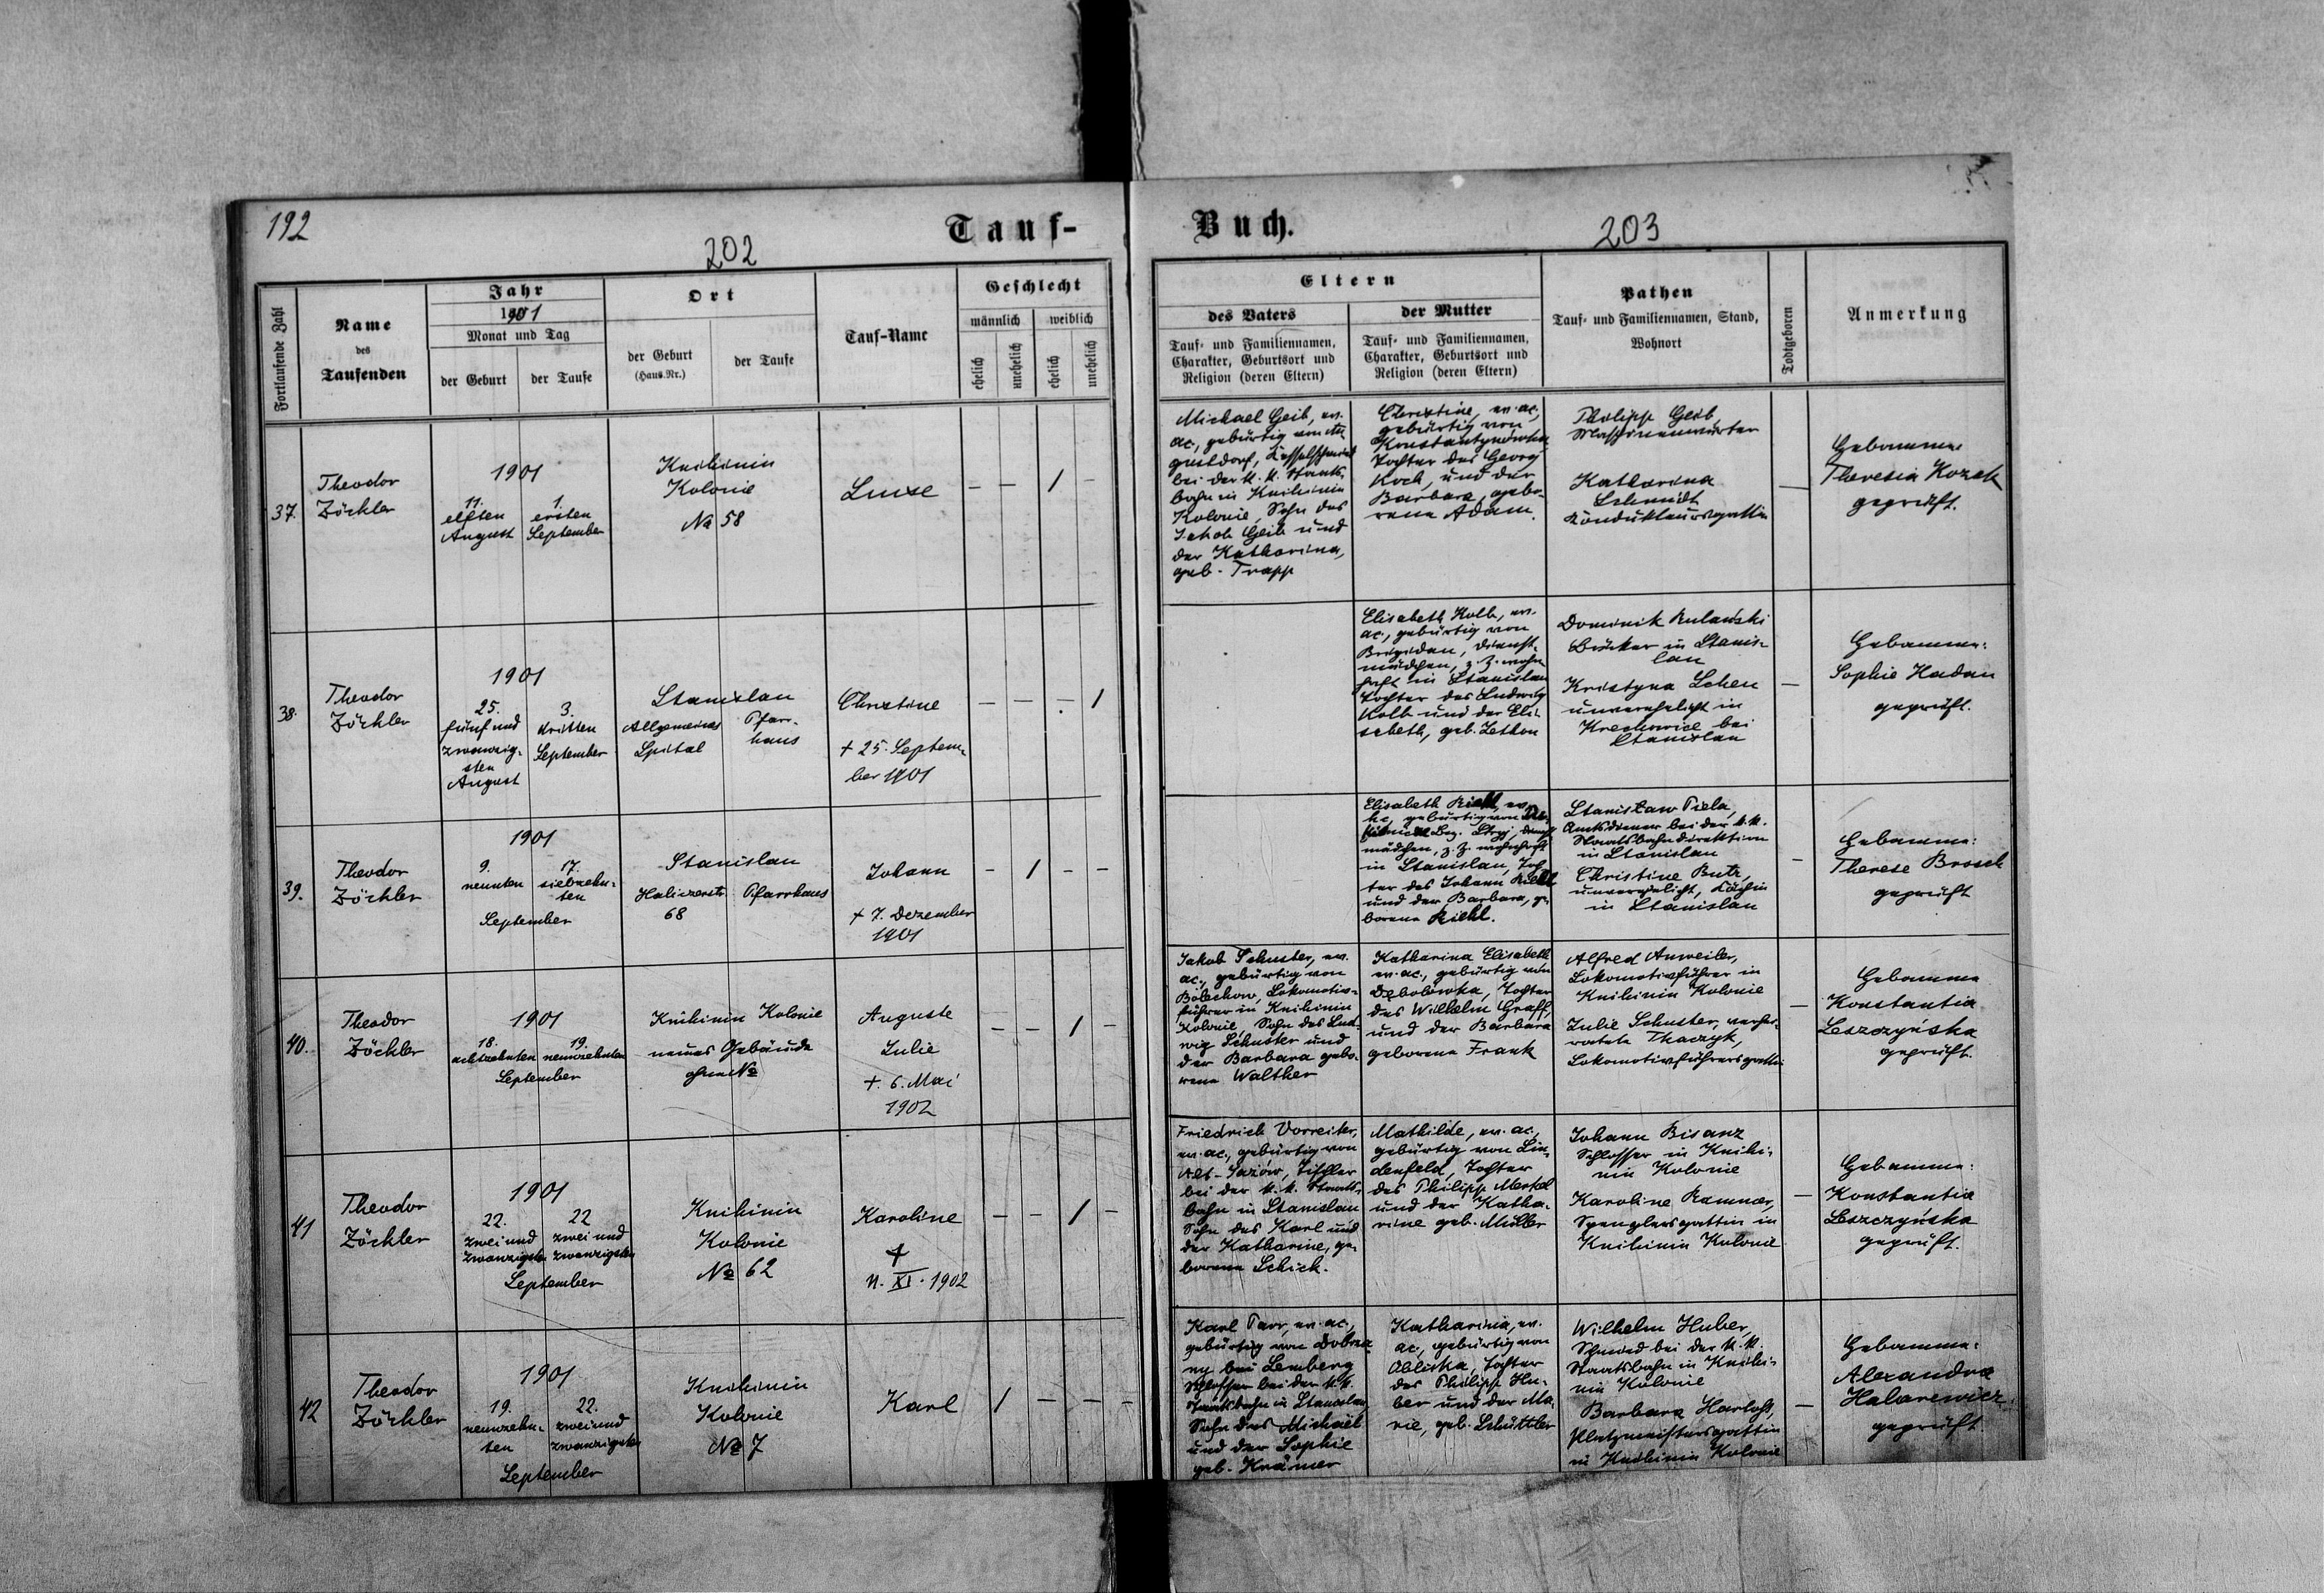 192
202
Tauf-
Buch.
203
Fortlaufende Zahl
Name
des
Taufenden
Jahr
1901
Monat und Tag
der Geburt
der Taufe
Ort
der Geburt
(Haus-Nr.)
der Taufe
Tauf-Name
Geschlecht
männlich
weiblich
ehelich
unehelich
ehelich
unehelich
Eltern
des Vaters
Tauf- und Familiennamen,
Charakter, Geburtsort und
Religion (deren Eltern)
der Mutter
Tauf- und Familiennamen,
Charakter, Geburtsort und
Religion (deren Eltern)
Pathen
Tauf- und Familiennamen, Stand,
Wohnort
Todtgeboren
Anmerkung
37.
Theodor
Zöckler
1901
11.
elften
August
1.
ersten
September
Knihinin
Kolonie
№ 58
Luise
– – / –
Michael Geib, ev.
ac., gebürtig von Au-
gustdorf, Kesselschmied
bei der k. k. Staats-
bahn in Knihinin
Kolonie, Sohn des
Jakob Geib und
der Katharina,
geb. Trapp
Christine, ev. ac.,
gebürtig von
Konstantynówka
Tochter des Georg
Koch, und der
Barbara, gebo-
rene Adam.
Philipp Geib
Maschinenwärter
Katharina
Schmidt
Kondukteursgattin
–
Hebamme
Theresia Kozak
geprüft.
38.
Theodor
Zöckler
1901
25.
fünf und
zwanzig-
sten
August
3.
dritten
September
Stanislau
Allgemeines
Spital
Pfarr-
haus
Christine
+ 25. Septem-
ber 1901
– – – /
Elisabeth Kolb, ev.
ac., gebürtig von
Brigidau, Dienst-
mädchen, z. Z. wohn-
haft in Stanislau
Tochter des Ludwig
Kolb und der Eli-
sabeth, geb.
Dominik Rulański
in Stanis-
lau
Kristyna Lehen
unverehelicht in
Krechowice bei
Stanislau
–
Hebamme:
Sophie Hadan
geprüft.
39.
Theodor
Zöckler
1901
9.
neunten
17.
siebzehn-
ten
September
Stanislau
Haliczerstr.
68
Pfarrhaus
Johann
+ 7. Dezember
1901
– / – –
Elisabeth Riehl, ev.
hc, gebürtig von
Bez. Stryj, Dienst-
mädchen, z. Z. wohnhaft
in Stanislau, Toch-
ter des Johann Riehl
und der Barbara, ge-
borene Riehl.
Stanisław Piela,
Amtsdiener bei der k. k.
Staatsbahndirektion
in Stanislau
Christine Butz,
unverehelicht, Köchin
in Stanislau
–
Hebamme:
Therese Brosch
geprüft
40.
Theodor
Zöckler
1901
18.
achtzehnten
19.
neunzehnten
September
Knihinin Kolonie
neues Gebäude
ohne №
Auguste
Julie
+. 6. Mai
1902
– – / –
Jakob Schuster, ev.
ac., gebürtig von
Bolechow, Lokomotiv-
führer in Knihinin
Kolonie, Sohn des Lud-
wig Schuster und
der Barbara gebo-
rene Walther
Katharina Elisabeth
ev. ac., gebürtig von
Dębolówka, Tochter
des Wilhelm Graff,
und der Barbara
geborene Frank
Alfred Anweiler,
Lokomotivführer in
Knihinin Kolonie
Julie Schuster, verhei-
ratete Tkaczyk,
Lokomotivführersgattin
–
Hebamme
Konstantia
Leszczyńska
geprüft.
41
Theodor
Zöckler
1901
22.
zwei und
zwanzigsten
22
zwei und
zwanzigsten
September
Knihinin
Kolonie
№ 62
Karoline
+
11. XI. 1902
– – / –
Friedrich Vorreiter,
ev. ac., gebürtig von
Alt-Jazów, Tischler
bei der k. k. Staats-
bahn in Stanislau
Sohn des Karl und
der Katharine, ge-
borene Schick.
Mathilde, ev. ac.,
gebürtig von Lin-
denfeld, Tochter
des Philipp Mertel
und der Katha-
rine geb. Müller
Johann Bisanz
Schlosser in Knihi-
nin Kolonie
Karoline Ramner,
Spenglersgattin in
Knihinin Kolonie
–
Hebamme:
Konstantia
Leszczyńska
geprüft.
42
Theodor
Zöckler
1901
19.
neunzehn-
ten
22.
zwei und
zwanzigsten
September
Knihinin
Kolonie
№ 7
Karl
/ – – –
Karl Parr, ev. ac.,
gebürtig von Dobrza-
ny bei Lemberg
Schlosser bei der k. k.
Staatsbahn in Stanislau
Sohn des Michael
und der Sophie
geb. Krämer
Katharina, ev.
ac., gebürtig von
Obliska, Tochter
des Philipp Hu-
ber und der Ma-
rie, geb. Schüttler
Wilhelm Huber,
Schmied bei der k. k.
Staatsbahn in Knihi-
nin Kolonie
Barbara Harlos,
Platzmeistersgattin
in Knihinin Kolonie
–
Hebamme:
Alexandra
Halarewicz
geprüft